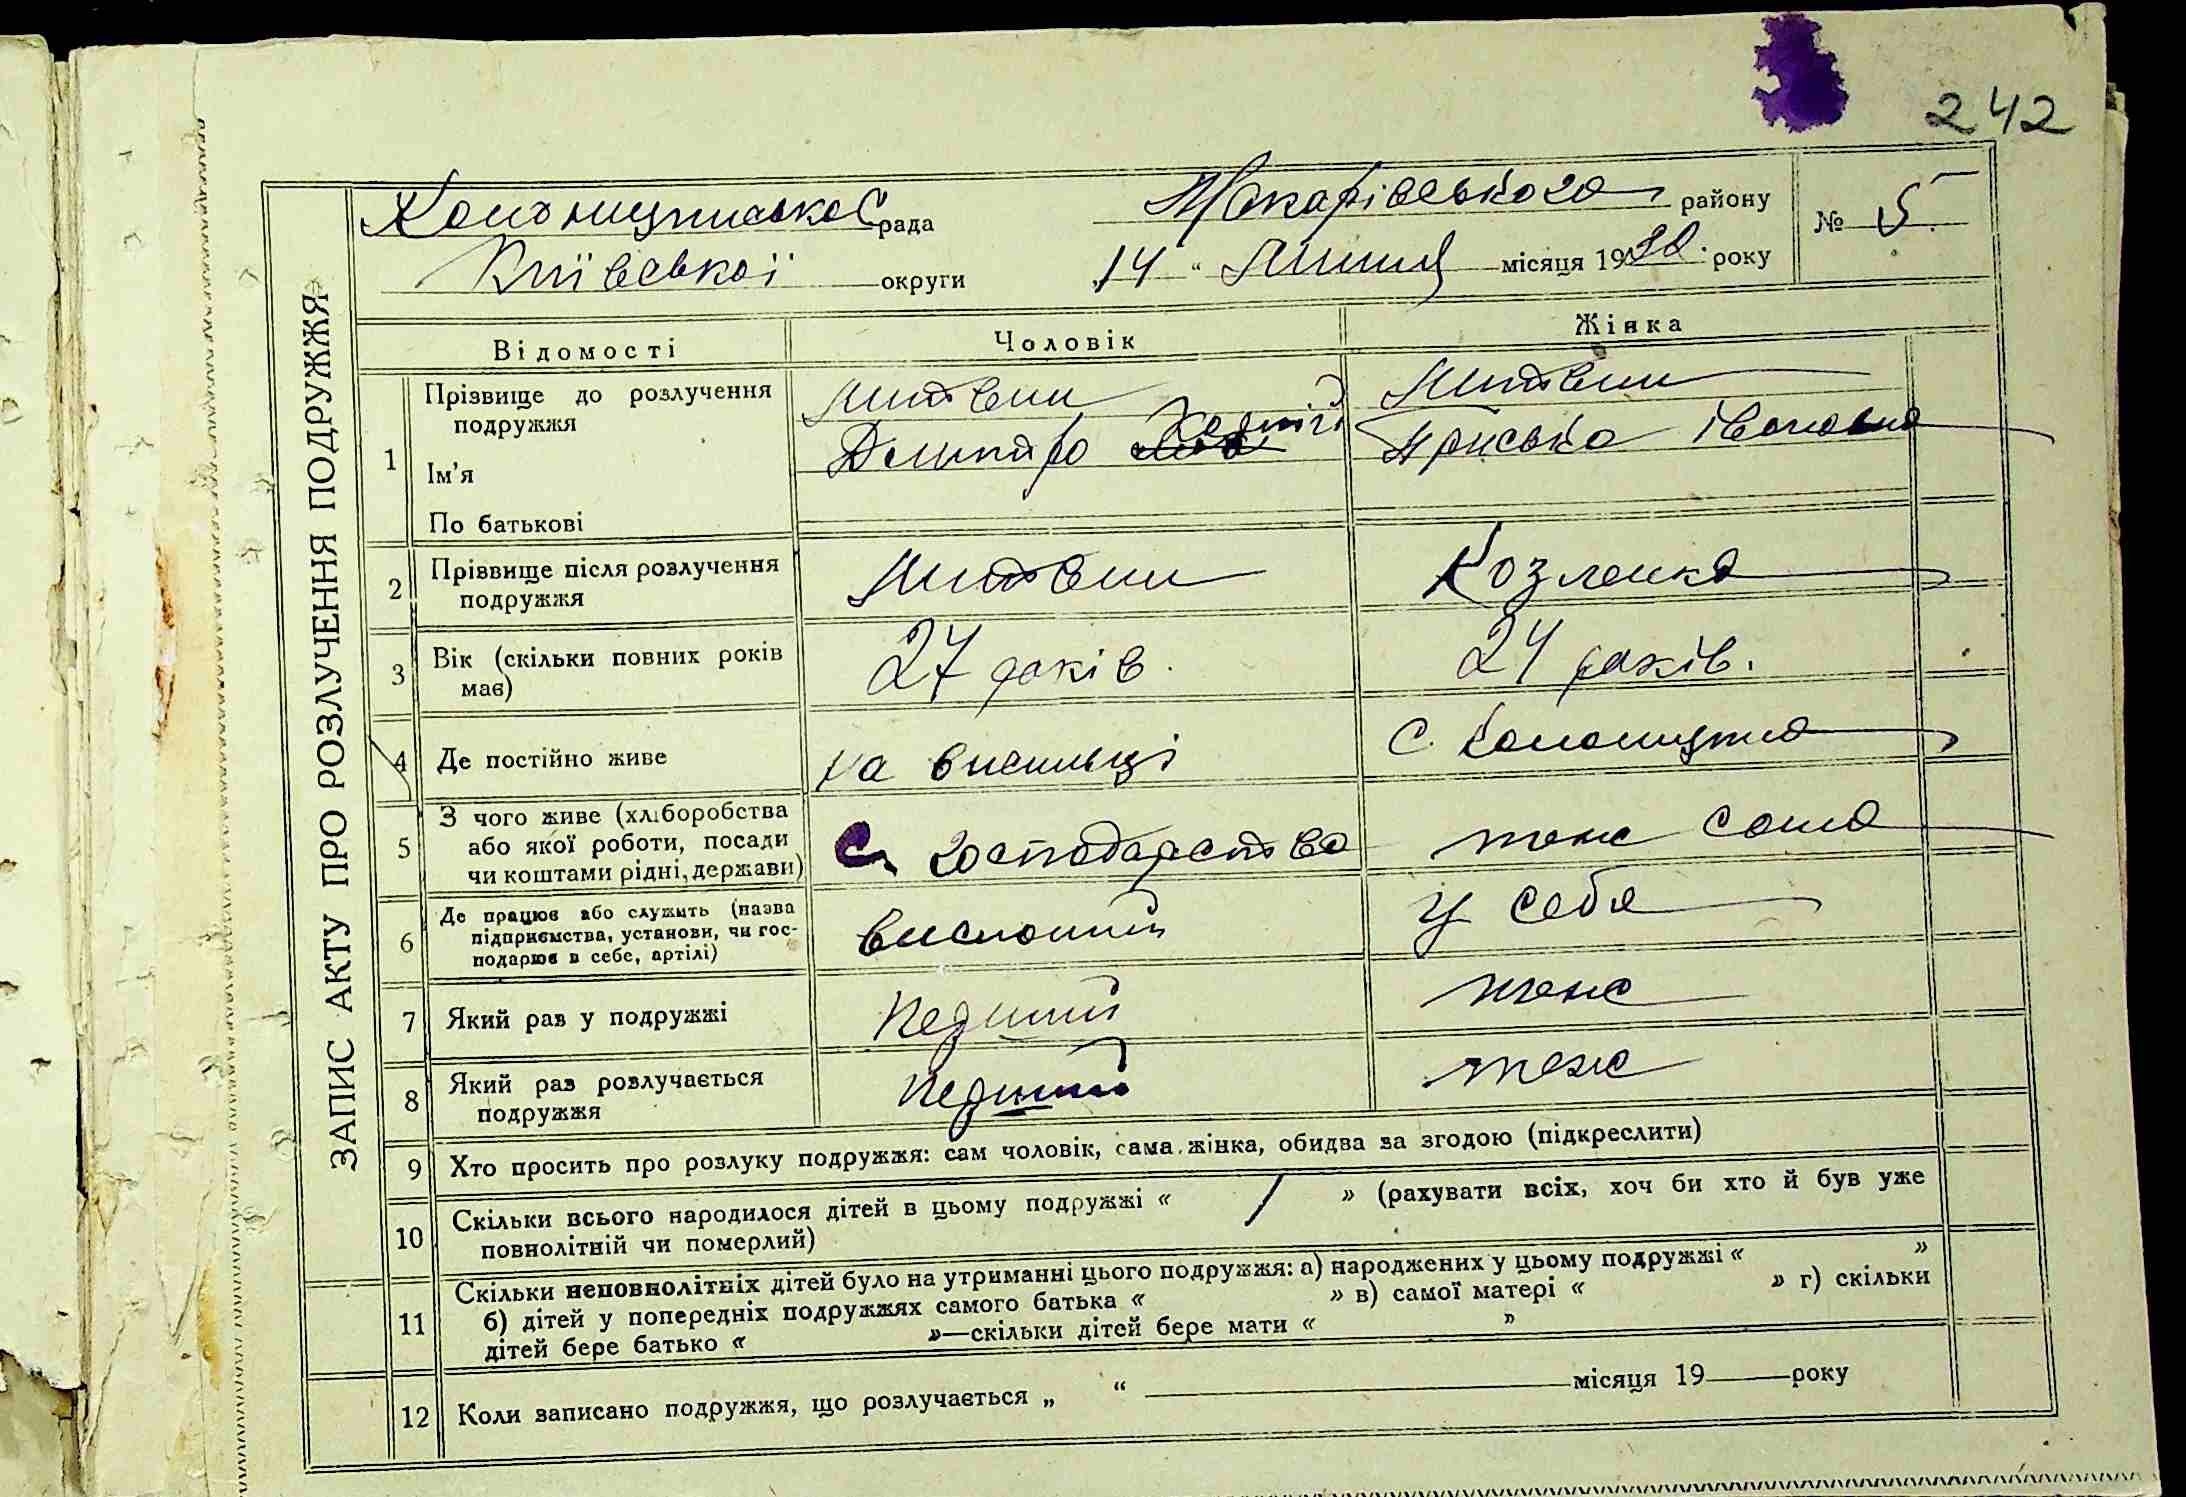 242
ЗАПИС АКТУ ПРО РОЗЛУЧЕННЯ ПОДРУЖЖЯ
рада Макарівського району № 5
Київської округи „14“ Липня місяця 1930 року
Відомості Чоловік Жінка
1 Прізвище до розлучення подружжя Литвин Литвин
Ім'я Дмитро Приська Івановна
По батькові
2 Прізвище після розлучення подружжя Литвин Козленко
3 Вік (скільки повних років має) 27 років. 24 років.
4 Де постійно живе на висильці С. Колонщина
5 З чого живе (хліборобства або якої роботи, посади чи коштами рідні, держави) С. господарство теж сама
6 Де працює або служить (назва підприємства, установи, чи господарює в себе, артілі) висланий у себя
7 Який раз у подружжі Перший теж
8 Який раз розлучається подружжя Перший теж
9 Хто просить про розлуку подружжя: сам чоловік, сама жінка, обидва за згодою (підкреслити)
10 Скільки всього народилося дітей в цьому подружжі « / » (рахувати всіх, хоч би хто й був уже
повнолітній чи померлий)
11 Скільки неповнолітніх дітей було на утриманні цього подружжя: а) народжених у цьому подружжі « »
б) дітей у попередніх подружжях самого батька « » в) самої матері « » г) скільки
дітей бере батько « »—скільки дітей бере мати « »
12 Коли записано подружжя, що розлучається „ “ місяця 19 року